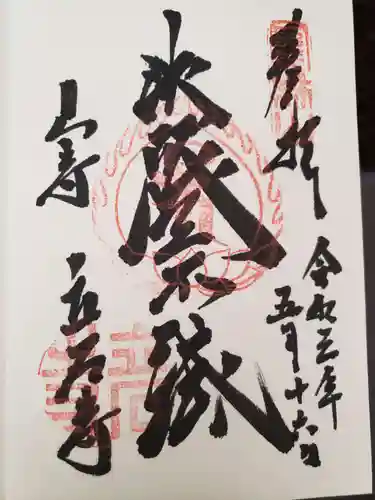 奉拝
令和三年
五月十六日
法燈不滅
山寺
立石寺